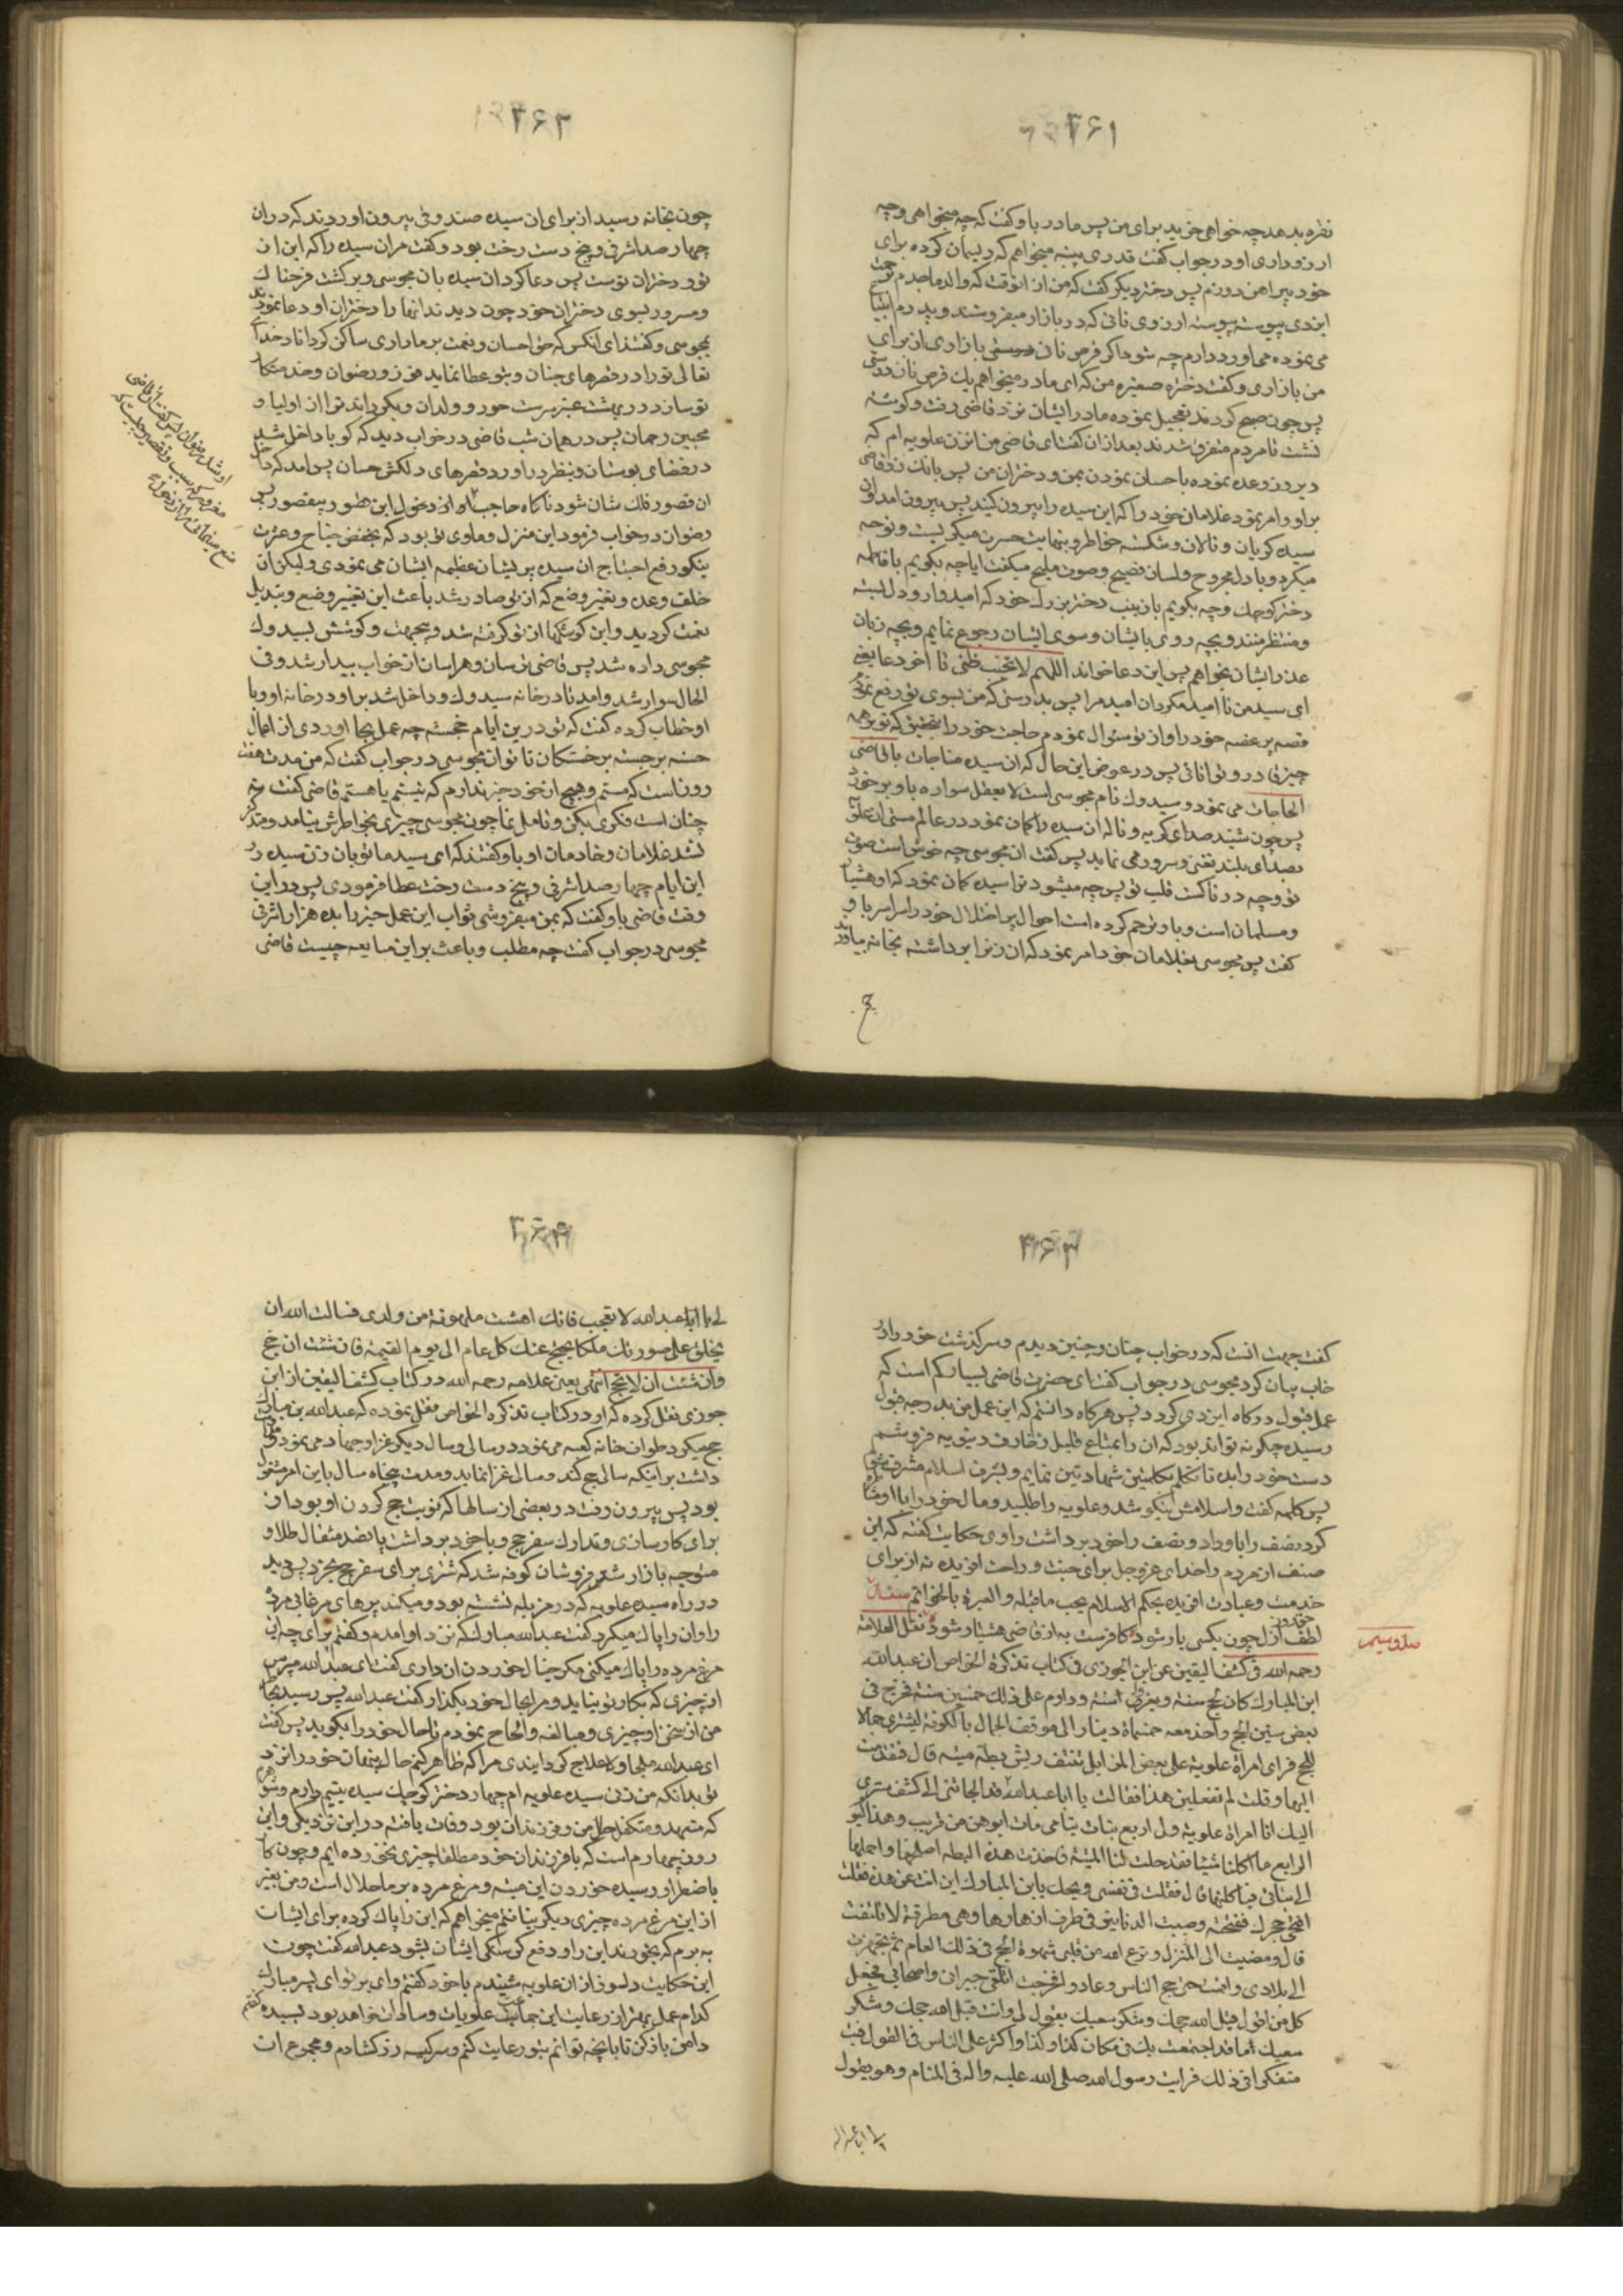 ۳۶۱
نقره بدهد چه خواهی خرید برای من پس مادر باو گفت که چه میخواهی و چه
ارزو داری او در جواب گفت قدری پنبه میخواهم که ریسمان کرده برای
خود پیراهن دوزم پس دختر دیگر گفت که من از انوقت که والد ماجدم
این دی پیوسته پیوسته ارزوی نانی که در بازار میفروشند و پدرم
می نموده می اورد دارم چه شود اکر قرص نان بازاری از برای
من بازاری و گفت دختره صغیره من که ای مادر میخواهم یک قرص نان
پس چون صبح کردند تعجیل نموده مادر ایشان نزد قاضی رفت و کوشه
نشست تا مردم متفرق شدند بعد از ان گفت ای قاضی من ان زن علویه ام که
دیروز وعده نموده باحسان نمودن بمن و دختران من پس بانک زد قاضی
بر او و امر نمود غلامان خود را که این سیده را بیرون کنید پس بیرون امد ان
سیده کریان و نالان و شکسته خاطر و بنهایت حسرت میکریست و نوحه
میکرد و با دل مجروح و لسان فصیح و صوت ملیح میکفت ایا چه بکویم با فاطمه
دختر کوچک و چه بکویم با زینب دختر بزرک خود که امیدوار و دل بسته
و منتظر منند و بچه روی با یشان و سوی ایشان رجوع نمایم و بچه زبان
عذر ایشان بخواهم پس این دعا خواند اللهم لا تخیب ظنی تا اخر دعا یعنی
ای سید من نا امید مکردان امید مرا پس بدرستی که من بسوی تو رفع نمودم
قصه پر غصه خود را و از تو سئوال نمودم حاجت خود را بتحقیق که تو بر همه
چیز قادر و توانائی پس در عوض این حال که ان سیده مناجات با قاضی
الحاجات می نمود و سیدوک نام مجوسی مست لا یعقل سواره باو بر خورد
پس چون شنید صدای کریه و ناله ان سیده را کمان نمود در عالم مستی ان علویه
بصدای بلند تغنی و سرور می نماید پس گفت ان مجوسی چه خوش است صوت
تو و چه دردناکست قلب تو پس چه میشود ترا سیده کمان نمود که او هشیار
و مسلمان است و باو ترحم کرده است احوال پر اختلال خود را سراسر باو
گفت پس مجوسی بغلامان خود امر نمود که ان زنرا برداشته بخانه بیاورند
۳۶۲
چون بخانه رسید از برای ان سیده صندوقی بیرون اوردند که در ان
چهار صد اشرفی و پنج دست رخت بود و گفت مر ان سیده را که این از ان
تو و دختران توست پس دعا کرد ان سیده بان مجوسی و برکشت فرحناک
و مسرور بسوی دختران خود چون دیدند انها را دختران او دعا نمودند
بمجوسی و گفتند ای انکس که حق احسان و نعمت بر ما داری ساکن کرداناد خدا
تعالی تو را در قصرهای جنان و بتو عطا نماید فوز و رضوان و خدمتکار
تو سازد در بهشت عنبر سرشت حور و ولدان و بکرداند تو را از اولیا و
محبین رحمان پس در همان شب قاضی در خواب دید که کویا داخل شد
در فضای بوستان و بنظر دراورد قصرهای دلکش حسان پس امد که داخل
ان قصور فلک نشان شود ناکاه حاجب او از دخول این قصور بیقصور
رضوان در جواب فرمود این منزل و ماوی تو بود که بخفض جناح و عزت
نیکو رفع احتیاج ان سیده پریشان عظیمه ایشان می نمودی و لیکن ان
خلف وعده و تغیر وضع که از تو صادر شد باعث این تغییر وضع و تبدیل
نعمت کردید و این کوشکها از تو کرفته شد و بیجهت و کوشش بسیدوک
مجوسی داده شد پس قاضی ترسان و هراسان از خواب بیدار شد و فی
الحال سوار شد و امد تا در خانه سیدوک و داخل شد بر او در خانه او و با
او خطاب کرده گفت که تو درین ایام خجسته چه عمل بجا اوردی از اعمال
حسنه برجسته بر خستکان ناتوان مجوسی در جواب گفت که من مدت هفت
روز است که مستم و هیچ از خود خبر ندارم که نیستم یا هستم قاضی گفت نه
چنان است فکری بکن و تامل نما چون مجوسی چیزی بخاطرش نیامد و متذکر
نشد غلامان و خادمان او باو گفتند که ای سید ما تو بان زن سیده در
این ایام چهار صد اشرفی و پنج دست رخت عطا فرمودی پس در این
وقت قاضی باو گفت که بمن میفروشی ثواب این عمل خیر را بده هزار اشرفی
مجوسی در جواب گفت چه مطلب و باعث بر این مبایعه چیست قاضی
۳۶۳
گفت جهت انست که در خواب چنان و چنین دیدم و سرگذشت خود را در
خاب بیان کرد مجوسی در جواب گفت ای حضرت قاضی بسیار کم است که
عمل قبول درکاه ایزدی کردد پس هرکاه دانستم که این عمل من بدرجه قبول
رسیده چکونه تواند بود که ان را بمتاع قلیل زخارف دنیویه فروشم
دست خود را بده تا تکلم بکلمتین شهادتین نمایم و بشرف اسلام مشرف شوم
پس کلمه گفت و اسلامش نیکو شد و علویه را طلبید و مال خود را با او مشاطره
کرد نصف را باو داد و نصف را خود برداشت راوی حکایت گفته که این
صنف از مردم را خدای عز و جل برای جنت و راحت افریده نه از برای
خدمت و عبادت افریده بحکم الاسلام یجب ما قبله و العبرة بالخواتم
لطف ازل چون بکسی یار شود کافر مست به از قاضی هشیار شود نقل العلامة
صد و سیم
رحمه الله فی کشف الیقین عن ابن الجوزی فی کتاب تذکرة الخواص ان عبدالله
ابن المبارک کان یحج سنة و یغزو سنة و داوم علی ذلک خمسین سنة فخرج فی
بعض سنین الحج و اخذ معه خمسمأة دینار الی موقف الجمال بالکوفة لیشتری جمالا
للحج فرای امراة علویة علی بعض المزابل تنتف ریش بطة میتة قال فتقدمت
الیها و قلت لم تفعلین هذا فقالت یا ابا عبدالله قد الجأتنی الی کشف سری
الیک انا امراة علویة ولی اربع بنات یتامی مات ابوهن من قریب و هذا الیوم
الرابع ما اکلنا شیئا فقد حلت لنا المیتة فاخذت هذه البطة اصلحها و احملها
الی بناتی فیأکلنها قال فقلت فی نفسی ویحک یا بن المبارک این انت عن هذه فقلت
افتحی حجرک ففتحته و صببت الدنانیر فی طرف ازهارها و هی مطرقة لا تلتفت
قال و مضیت الی المنزل و نزع الله من قلبی شهوة الحج فی ذلک العام ثم تجهزت
الی بلادی و اقمت حتی حج الناس و عادوا فخرجت اتلقی جیرانی و اصحابی فجعل
کل من اقول قبل الله حجک و شکر سعیک یقول لی و انت قبل الله حجک و شکر
سعیک اما قد اجتمعت بک فی مکان کذا و کذا و اکثر علی الناس فی القول فبت
متفکرا فی ذلک فرایت رسول الله صلی الله علیه و اله فی المنام و هو یقول
لی یا ابا عبد الله
۳۶۴
لی یا ابا عبدالله لا تعجب فانک اغثت ملهوفة من ولدی فسالت الله ان
یخلق علی صورتک ملکا یحج عنک کل عام الی یوم القیمة فان شئت ان تحج
و ان شئت ان لا تحج انتهی یعنی علامه رحمه الله در کتاب کشف الیقین از ابن
جوزی نقل کرده که او در کتاب تذکرة الخواص نقل نموده که عبدالله بن مبارک
حج میکرد و طواف خانه کعبه می نمود در سالی و سال دیکر غزا و جهاد می نمود و
داشت بر اینکه سالی حج کند و سال غزا نماید و مدت پنجاه سال باین امر مشغول
بود پس بیرون رفت در بعضی از سالها که نوبت حج کردن او بود از
برای کارسازی و تدارک سفر حج و با خود برداشت پانصد مثقال طلا و
متوجه بازار شتر فروشان کوفه شد که شتری برای سفر حج بخرد پس دید
در راه سیده علویه که در مزبله نشسته بود و میکند پرهای مرغابی مرده
را و ان را پاک میکرد گفت عبدالله مبارک که نزد او امدم و گفتم برای چه این
مرغ مرده را پاک میکنی مکر خیال خوردن ان داری گفت ای عبدالله مپرس
از چیزی که بکار تو نیاید و مرا بحال خود بکذار گفت عبدالله پس رسید بخاطر
من از سخن او چیزی و مبالغه و الحاح نمودم تا حال خود را بکوید پس گفت
ای عبدالله ملجا و لاعلاج کردانیدی مرا که ظاهر کنم حال پنهان خود را نزد
تو بدانکه من زنی سیده علویه ام چهار دختر کوچک سیده یتیم دارم و شوهرم
که متعهد و متکفل حال من و فرزندان بود وفات یافته در این نزدیکی و این
روز چهارم است که با فرزندان خود مطلقا چیزی نخورده ایم و چون کار
باضطرار رسیده خوردن این میته و مرغ مرده بر ما حلال است و من بغیر
از این مرغ مرده چیزی دیکر نیافتم میخواهم که این را پاک کرده برای ایشان
به برم که بخورند این را و دفع کرسنکی ایشان بشود عبدالله گفت چون
این حکایت دلسوز از ان علویه شنیدم با خود گفتم وای بر تو ای پسر مبارک
کدام عمل بهتر از رعایت این جماعت علویات و سادات خواهد بود بسیده گفتم
دامن باز کن تا بانچه توانم بتو رعایت کنم و سر کیسه زر کشادم و مجموع ان